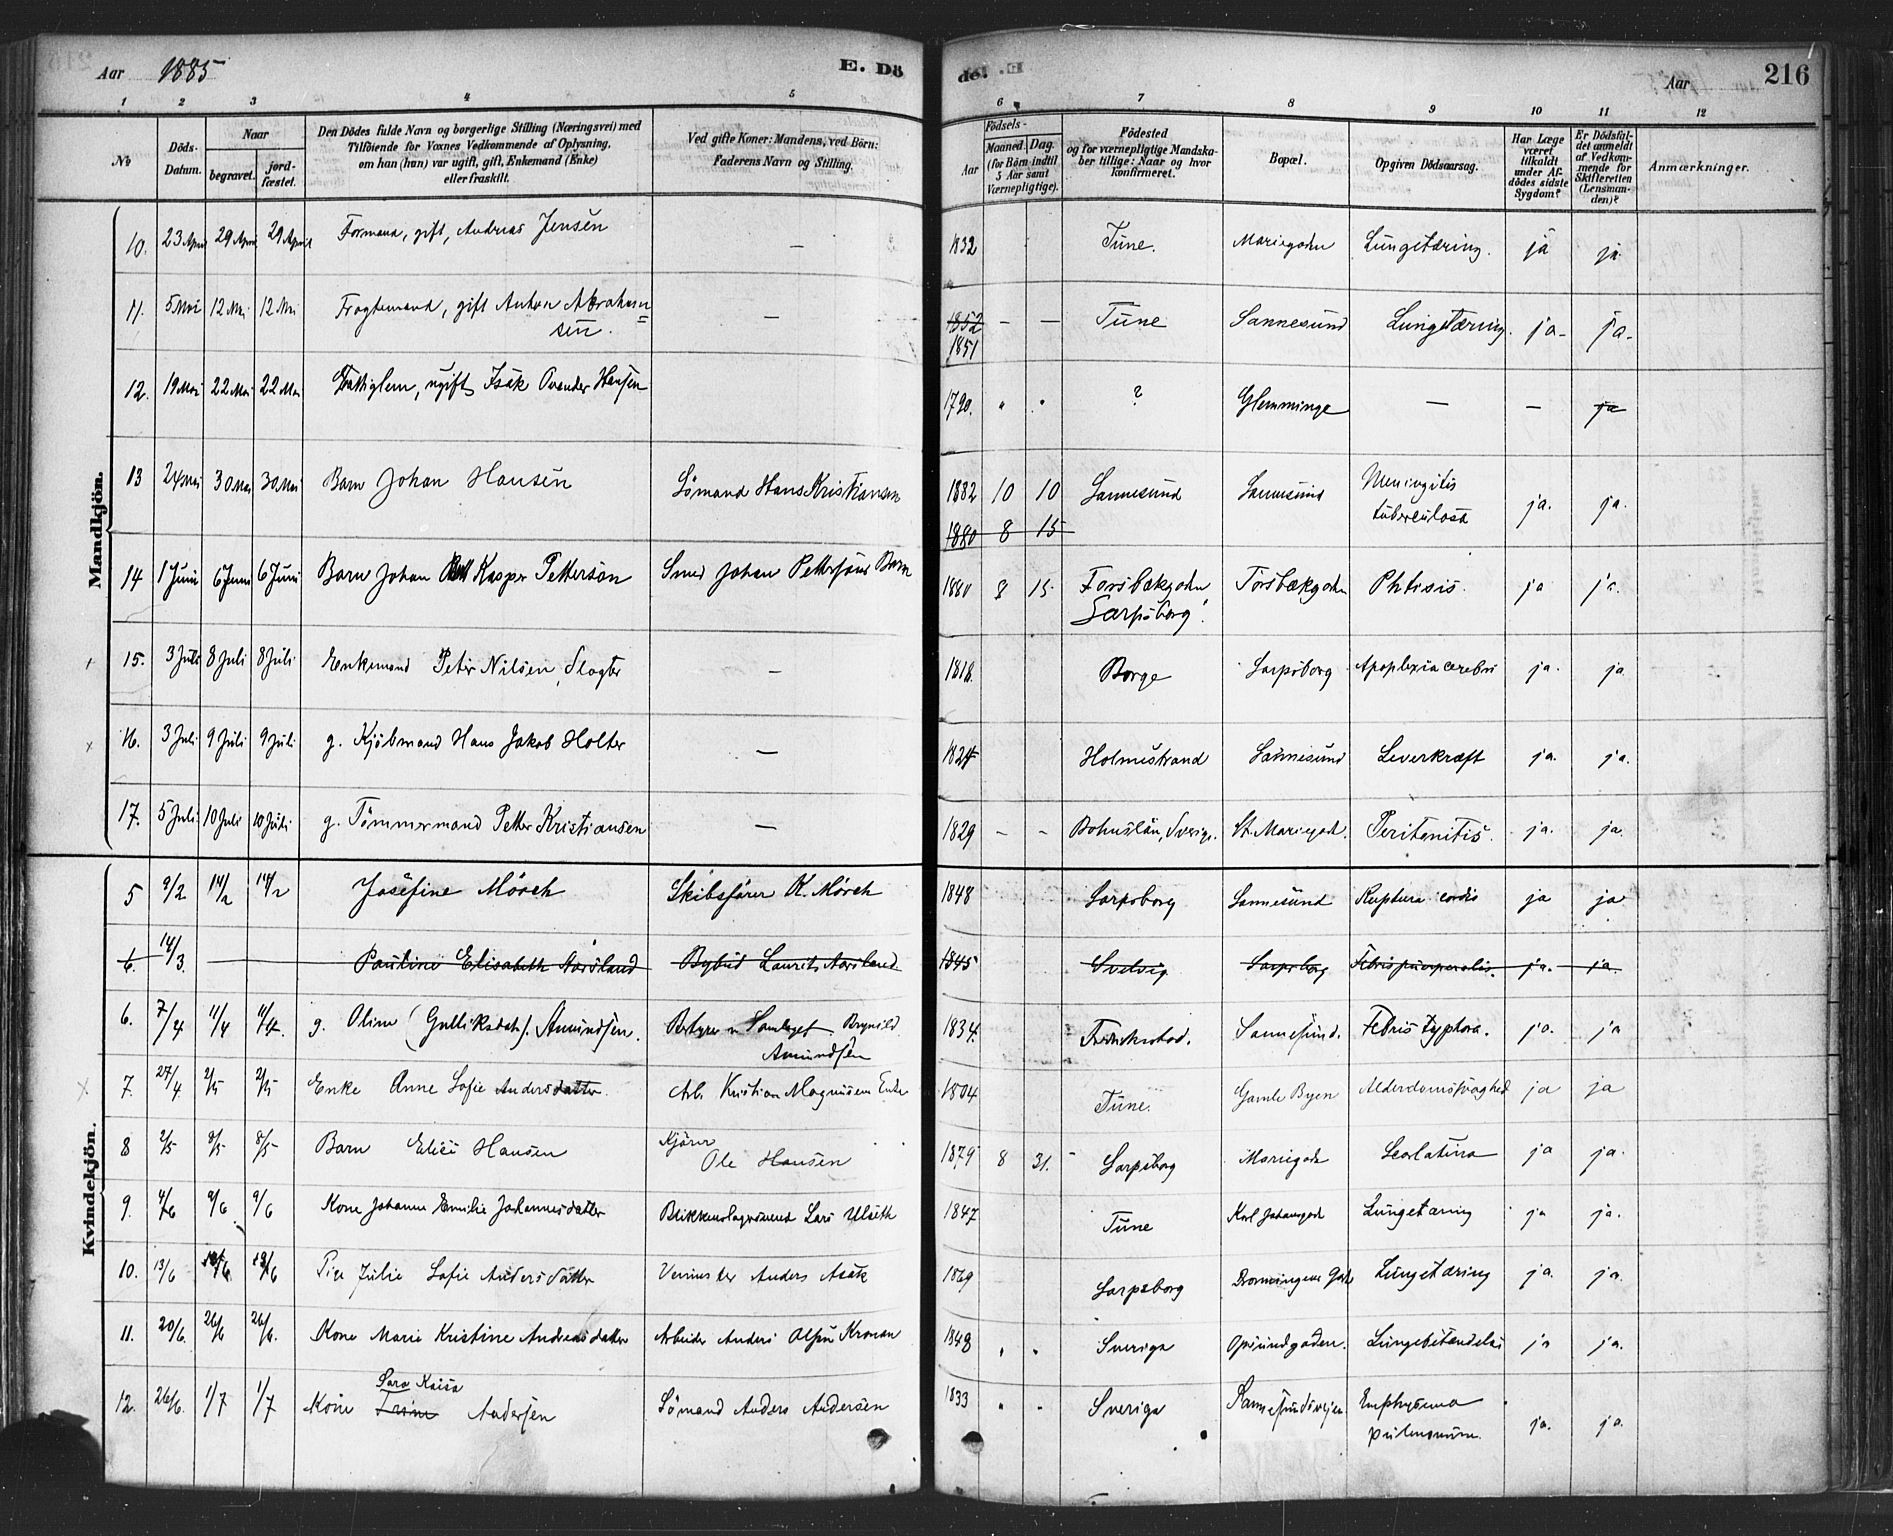 Aar 1885 E. Dö
de. Aar 216
1 2 3 4 5 6 7 8 9 10 11 12
No
Döds-Datum.
Naar
begravet. jord-fæstet.
Den Dödes fulde Navn og borgerlige Stilling (Næringsvei) med
Tilföiende for Voxnes Vedkommende af Oplysning,
om han (hun) var ugift, gift, Enkemand (Enke)
eller fraskilt.
Ved gifte Koner: Mandens, ved Börn:
Faderens Navn og Stilling.
Födsels-
Aar Maaned. Dag.
(for Börn indtil 5 Aar samt Værnepligtige).
Födested
og for værnepligtige Mandska-
ber tillige: Naar og hvor
konfirmeret.
Bopæl.
Opgiven Dödsaarsag.
Har Læge været tilkaldt under Af-dödes sidste Sygdom?
Er Dödsfal-det anmeldt af Vedkom-mende for Skifteretten (Lensman-den)?
Anmærkninger.
Mandkjön.
10. 23 April 29 April 29 April Formand, gift, Andreas Jensen — 1832 Tune. Mariegaden Lungetæring. ja ja
11. 5 Mai 12 Mai 12 Mai Fragtemand, gift Anton Abraham=
sen. — 1852 — — Tune Sannesund Lungetæring. ja- ja-
1851
12. 19 Mai 22 Mai 22 Mai Fattiglem, ugift Isak Hansen 1790. " " ? Glemminge — — ja
13 24 Mai 30 Mai 30 Mai Barn Johan Hansen Sömand Hans Kristiansen 1882 10 10 Sannesund Sannesund Meningitis
tuberculosa ja. ja.
1880 8 15
14 1 Juni 6 Juni 6 Juni Barn Johan Kasper Petterson Smed Johan Pettersons Barn 1880 8 15 Torsbækgaden
Sarpsborg. Torsbækgaden Phtisis. ja ja.
15. 3 Juli 8 Juli 8 Juli Enkemand Peter Nilsen, Slagter — 1818. Borge Sarpsborg Apoplexia cerebri ja. ja
16. 3 Juli 9 Juli 9 Juli g. Kjöbmand Hans Jakob Holter — 1824 Holmestrand Sannesund Leverkræft ja. ja.
17. 5 Juli 10 Juli 10 Juli g. Tömmermand Petter Kristiansen — 1829 — — Bohuslän, Sverige. St. Mariegad. Peritonitis. ja. ja.
Kvindekjön.
5 9/2 14/2 14/2 Josefine Mörch Skibsförer K. Mörch 1848 Sarpsborg Sannesund Ruptura cordis ja ja
6. 14/3. Pauline Elisabeth Aarsland Bybud Laurits Aarsland 1845 Svelvig Sarpsborg Febris puerperalis. ja. ja.
6. 7/4 11/4 11/4. g. Oline (Gulliksdatr). Amundsen. Bestyrer v Samlaget Brynild
Amundsen 1834. Fredrikstad. Sannesund. Febris typhoa. ja. ja
7. 27/4. 2/5 2/5 Enke Anne Sofie Andersdatter Arb. Kristian Magnusen Enke 1804 Tune. Gamle Byen Alderdomssvaghed ja ja
8 2/5 8/5 8/5 Barn Elise Hansen Kjörer
Ole Hansen 1879 8 31. Sarpsborg Mariegade Scarlatina ja ja.
9. 4/6 9/6 9/6 Kone Johanne Emilie Johannesdatter Blikkenslagersvend Lars Ulseth 1847 Tune Karl Johansgade Lungetæring ja ja.
10. 13/6 19/6 Pige Julie Sofie Andersdatter Anders Asak 1869 Sarpsborg Dronningens Gade Lungetæring ja. ja.
11. 20/6. 26/6 26/6. Kone Marie Kristine Andreasdatter Arbeider Anders Olsen Kronen 1848 " " Sverige Opsundgaden. Lungebetændelse ja ja.
Sara Kaisa
12. 26/6. 1/7 1/7 Kone Trine Andersen Sömand Anders Andersen 1833 " " Sverige Sannesundsveien Emphysema
pulmonum. ja. ja.